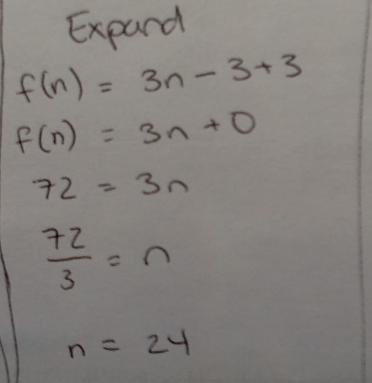 Expand
f(n) = 3n - 3 + 3
f(n) = 3n + 0
72 = 3n
72/3 = n
n = 24